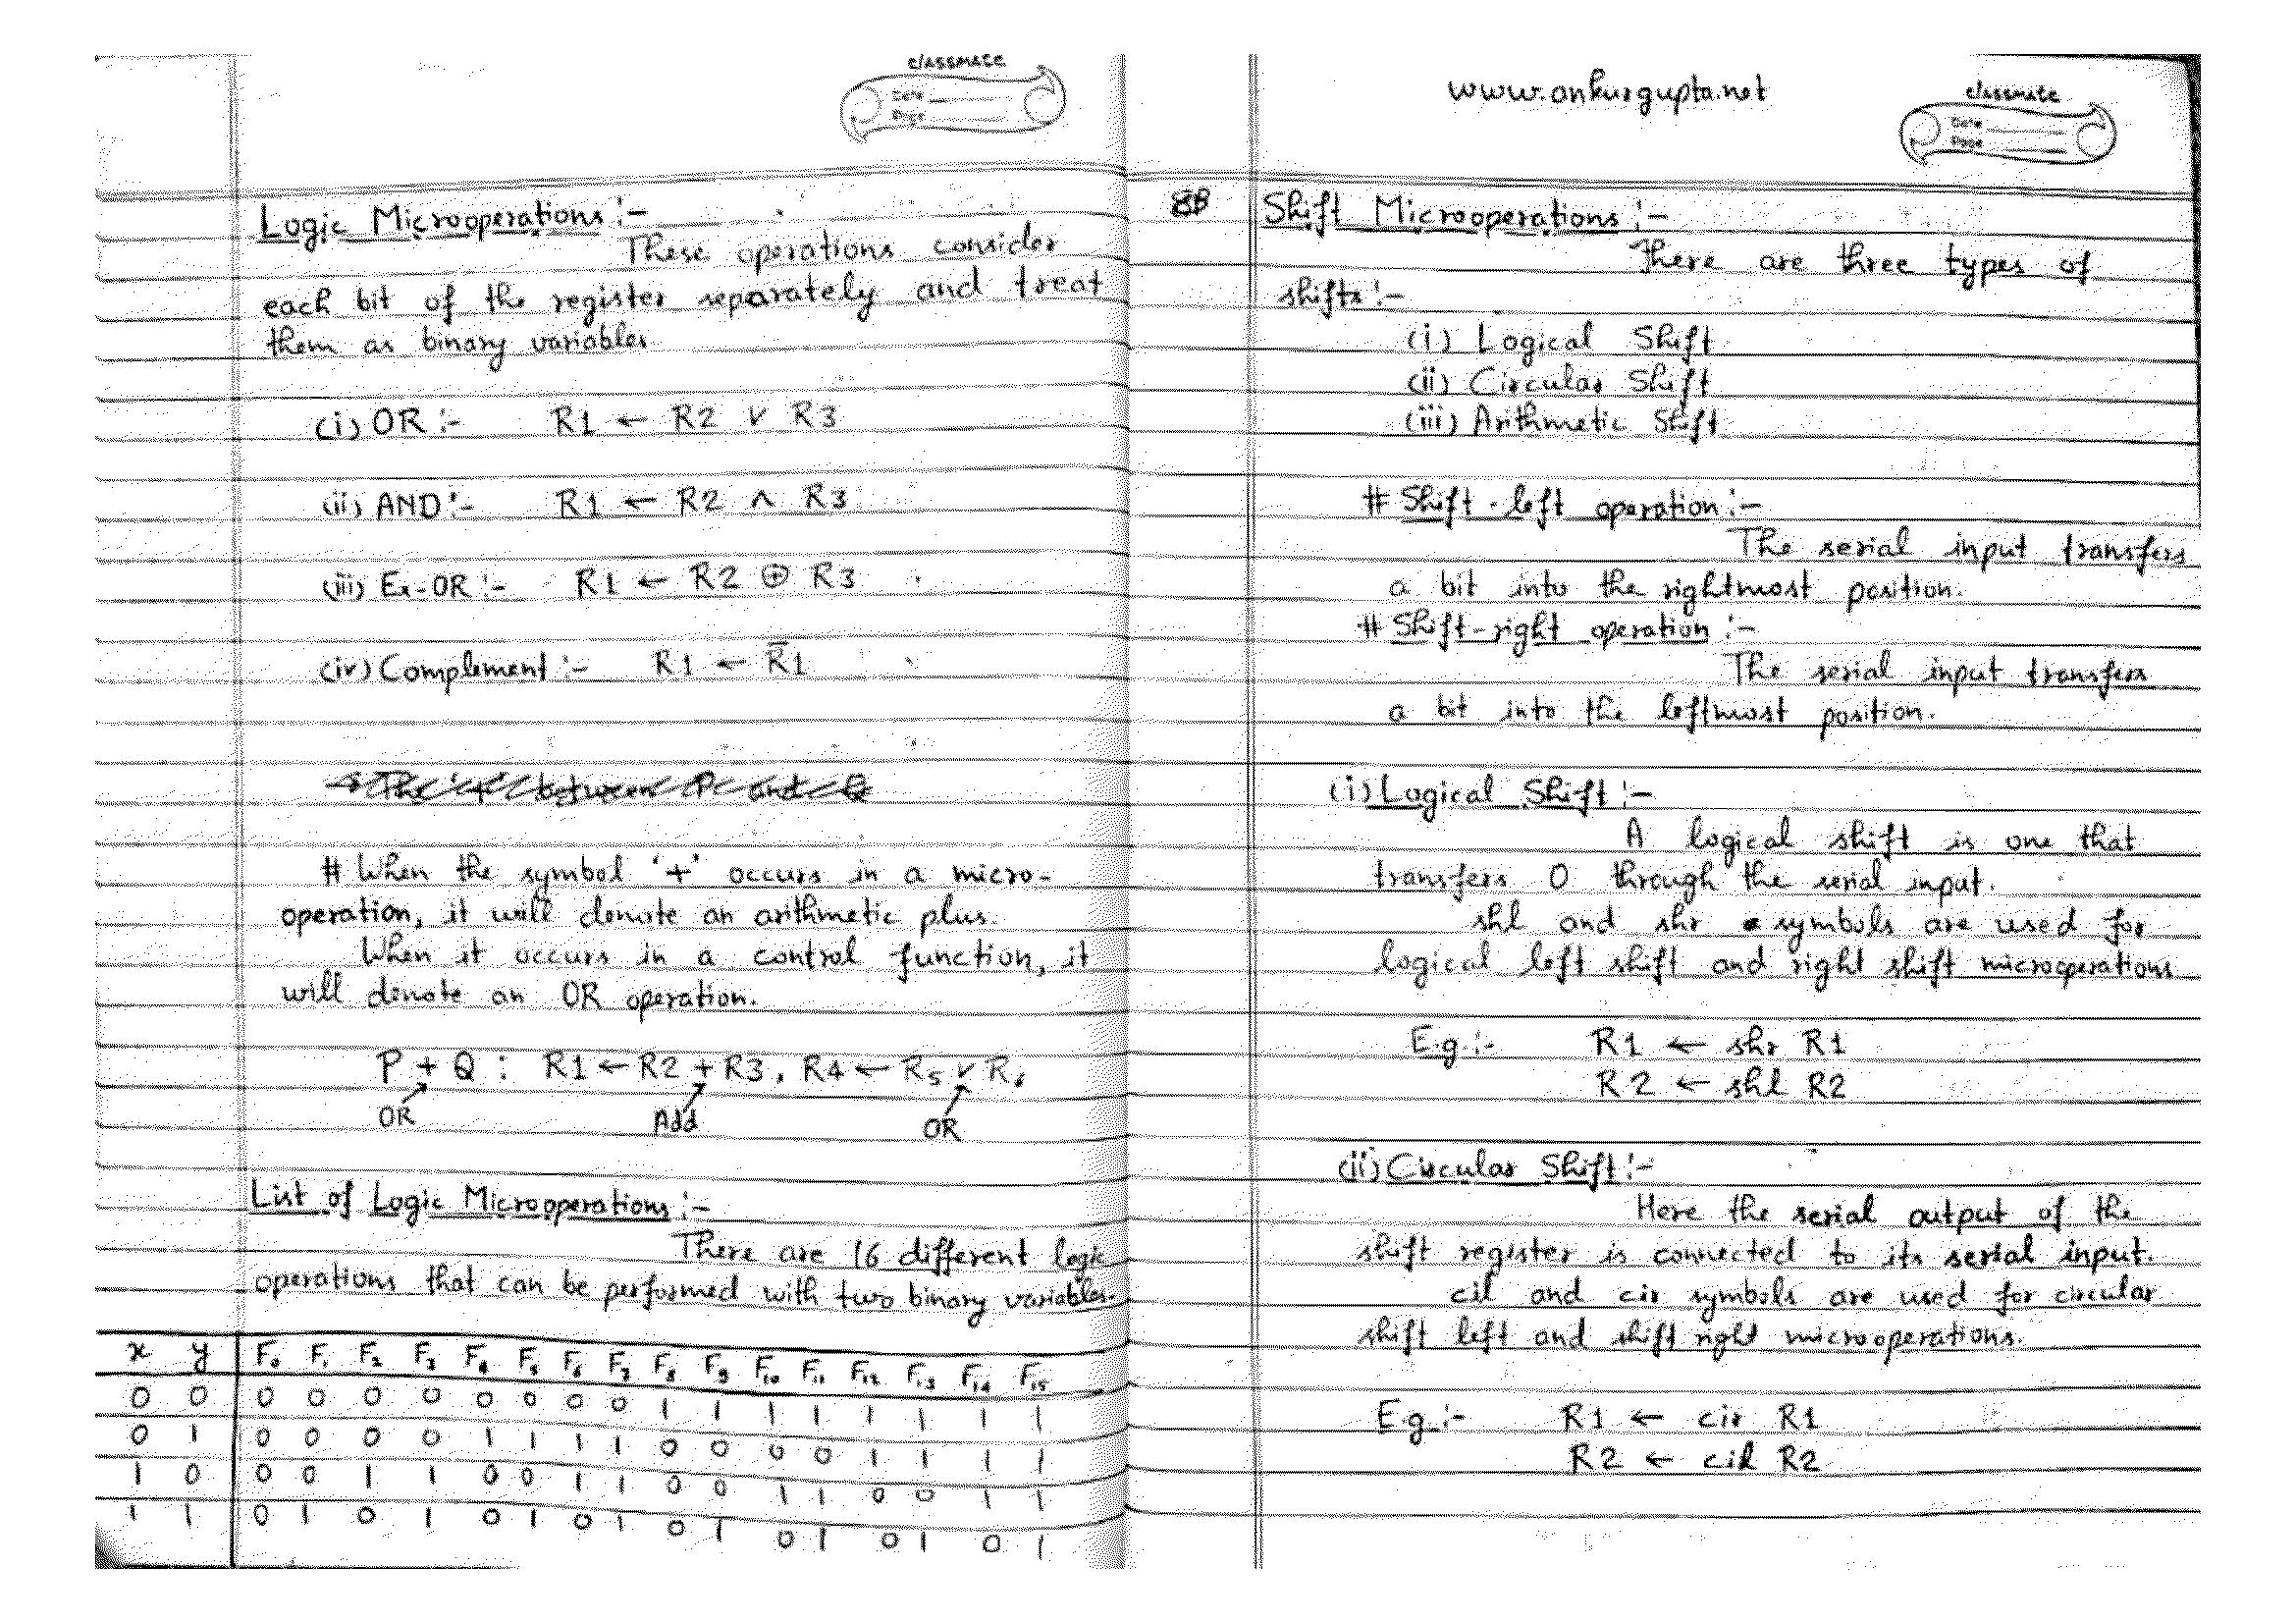 classmate
Date
Page
Logic Microoperations :-
These operations consider
each bit of the register separately and treat
them as binary variables
(i) OR :- R1 ← R2 ∨ R3
(ii) AND :- R1 ← R2 ∧ R3
(iii) Ex-OR :- R1 ← R2 ⊕ R3
(iv) Complement :- R1 ← R̅1
# When the symbol '+' occurs in a micro-
operation, it will denote an arithmetic plus.
When it occurs in a control function, it
will denote an OR operation.
P + Q : R1 ← R2 + R3, R4 ← R5 ∨ R6
OR Add OR
List of Logic Microoperations :-
There are 16 different logic
operations that can be performed with two binary variables.
x y F0 F1 F2 F3 F4 F5 F6 F7 F8 F9 F10 F11 F12 F13 F14 F15
0 0 0 0 0 0 0 0 0 0 1 1 1 1 1 1 1 1
0 1 0 0 0 0 1 1 1 1 0 0 0 0 1 1 1 1
1 0 0 0 1 1 0 0 1 1 0 0 1 1 0 0 1 1
1 1 0 1 0 1 0 1 0 1 0 1 0 1 0 1 0 1
www.ankurgupta.net
classmate
Date
Page
Shift Microoperations :-
There are three types of
shifts :-
(i) Logical Shift
(ii) Circular Shift
(iii) Arithmetic Shift
# Shift-left operation :-
The serial input transfers
a bit into the rightmost position.
# Shift-right operation :-
The serial input transfers
a bit into the leftmost position.
(i) Logical Shift :-
A logical shift is one that
transfers 0 through the serial input.
shl and shr symbols are used for
logical left shift and right shift microperations
E.g. :- R1 ← shr R1
R2 ← shl R2
(ii) Circular Shift :-
Here the serial output of the
shift register is connected to its serial input.
cil and cir symbols are used for circular
shift left and shift right microoperations.
E.g. :- R1 ← cir R1
R2 ← cil R2